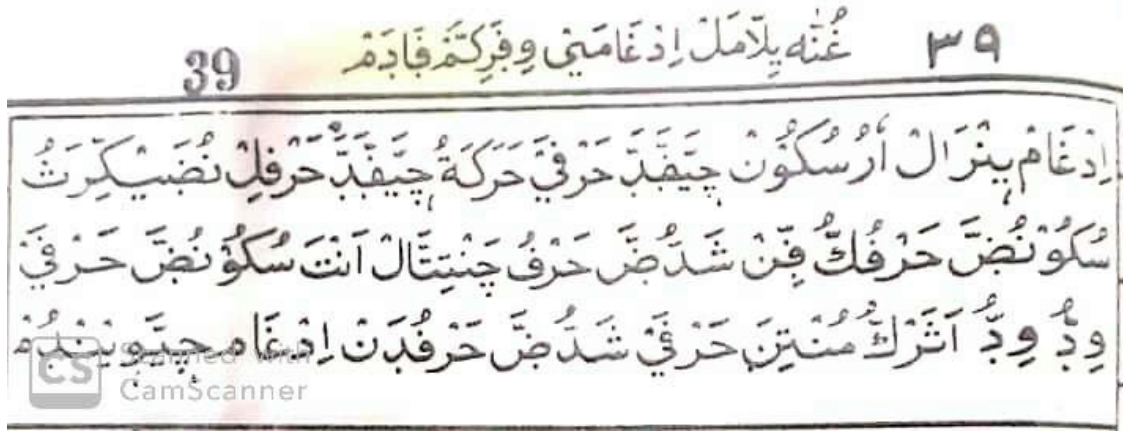 ٣٩ غُنّٰه پِلَّامَلْ اِدْغَامَيْنِ وِفَرِكَّڤَادَمْ 39
اِدْغَامْ يٖنْرَالْ اٗرُ سُكُوْنْ چٖيَّڤَّڊَّ حَرْفَيْ حَرَكَةْ چٖيَّڤَّڊَّ حَرْفِلْ نُضَيْكِّرَثُ
سُكُوْنُضَّ حَرْفُكُّ فِّنْ شَدُّضَّ حَرْفُ چَنْتِتَّالْ اَنْتَ سُكُوْنُضَّ حَرْفَيْ
وِڊُّ وِڊُّ اَثَرْكُّ مُنْتِنَ حَرْفَيْ شَدُّضَّ حَرْفُڊَنْ اِدْغَامْ چٖيَّوٖيْنْڊُمْ
CS Scanned with
CamScanner